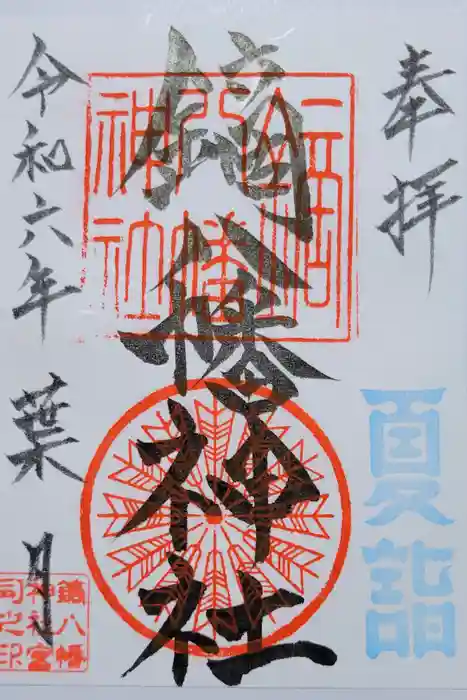 奉拝
夏詣
鏑八幡神社
鏑八幡神社
令和六年
葉月
鏑八幡
神社宮
司之印